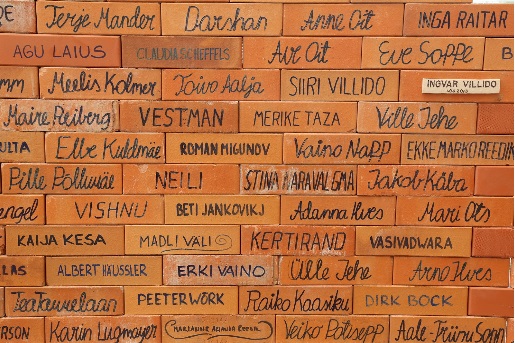 Terje Mander Darshan Anne Oit INGA RAITAR
AGU LAIUS CLAUDIA SCHEFFELS Ave Oit Eve Soppe B
mm Meelis Kolmer Toivo Aalja SIIRI VILLIDO INGVAR VILLIDO
Maire Reiberg VESTMAN MERIKE TAZA Ville Jehe
ULTA Elbe Kuldmäe ROMAN MIGUNOV Vaino Napp EKKE MARKO REEDIK
Pille Pölluväe NEILI STINA MARAVALGMA Jakob Käba
engel VISHNU BETI JANKOVIKJ Adanna Ilves Mari Ots
KAIJA KESA MADLI VÄLI KERTIRAND VASIVADWARA
LAS ALBERT HÄUSSLER ERKI VAINO Ülle Jehe Arno Ilves
PEETER WÖRK Raiko Kaasiku DIRK BOCK
RSON Karin Lugmayer Veiko Põtisepp Aale-Triinu Sonn